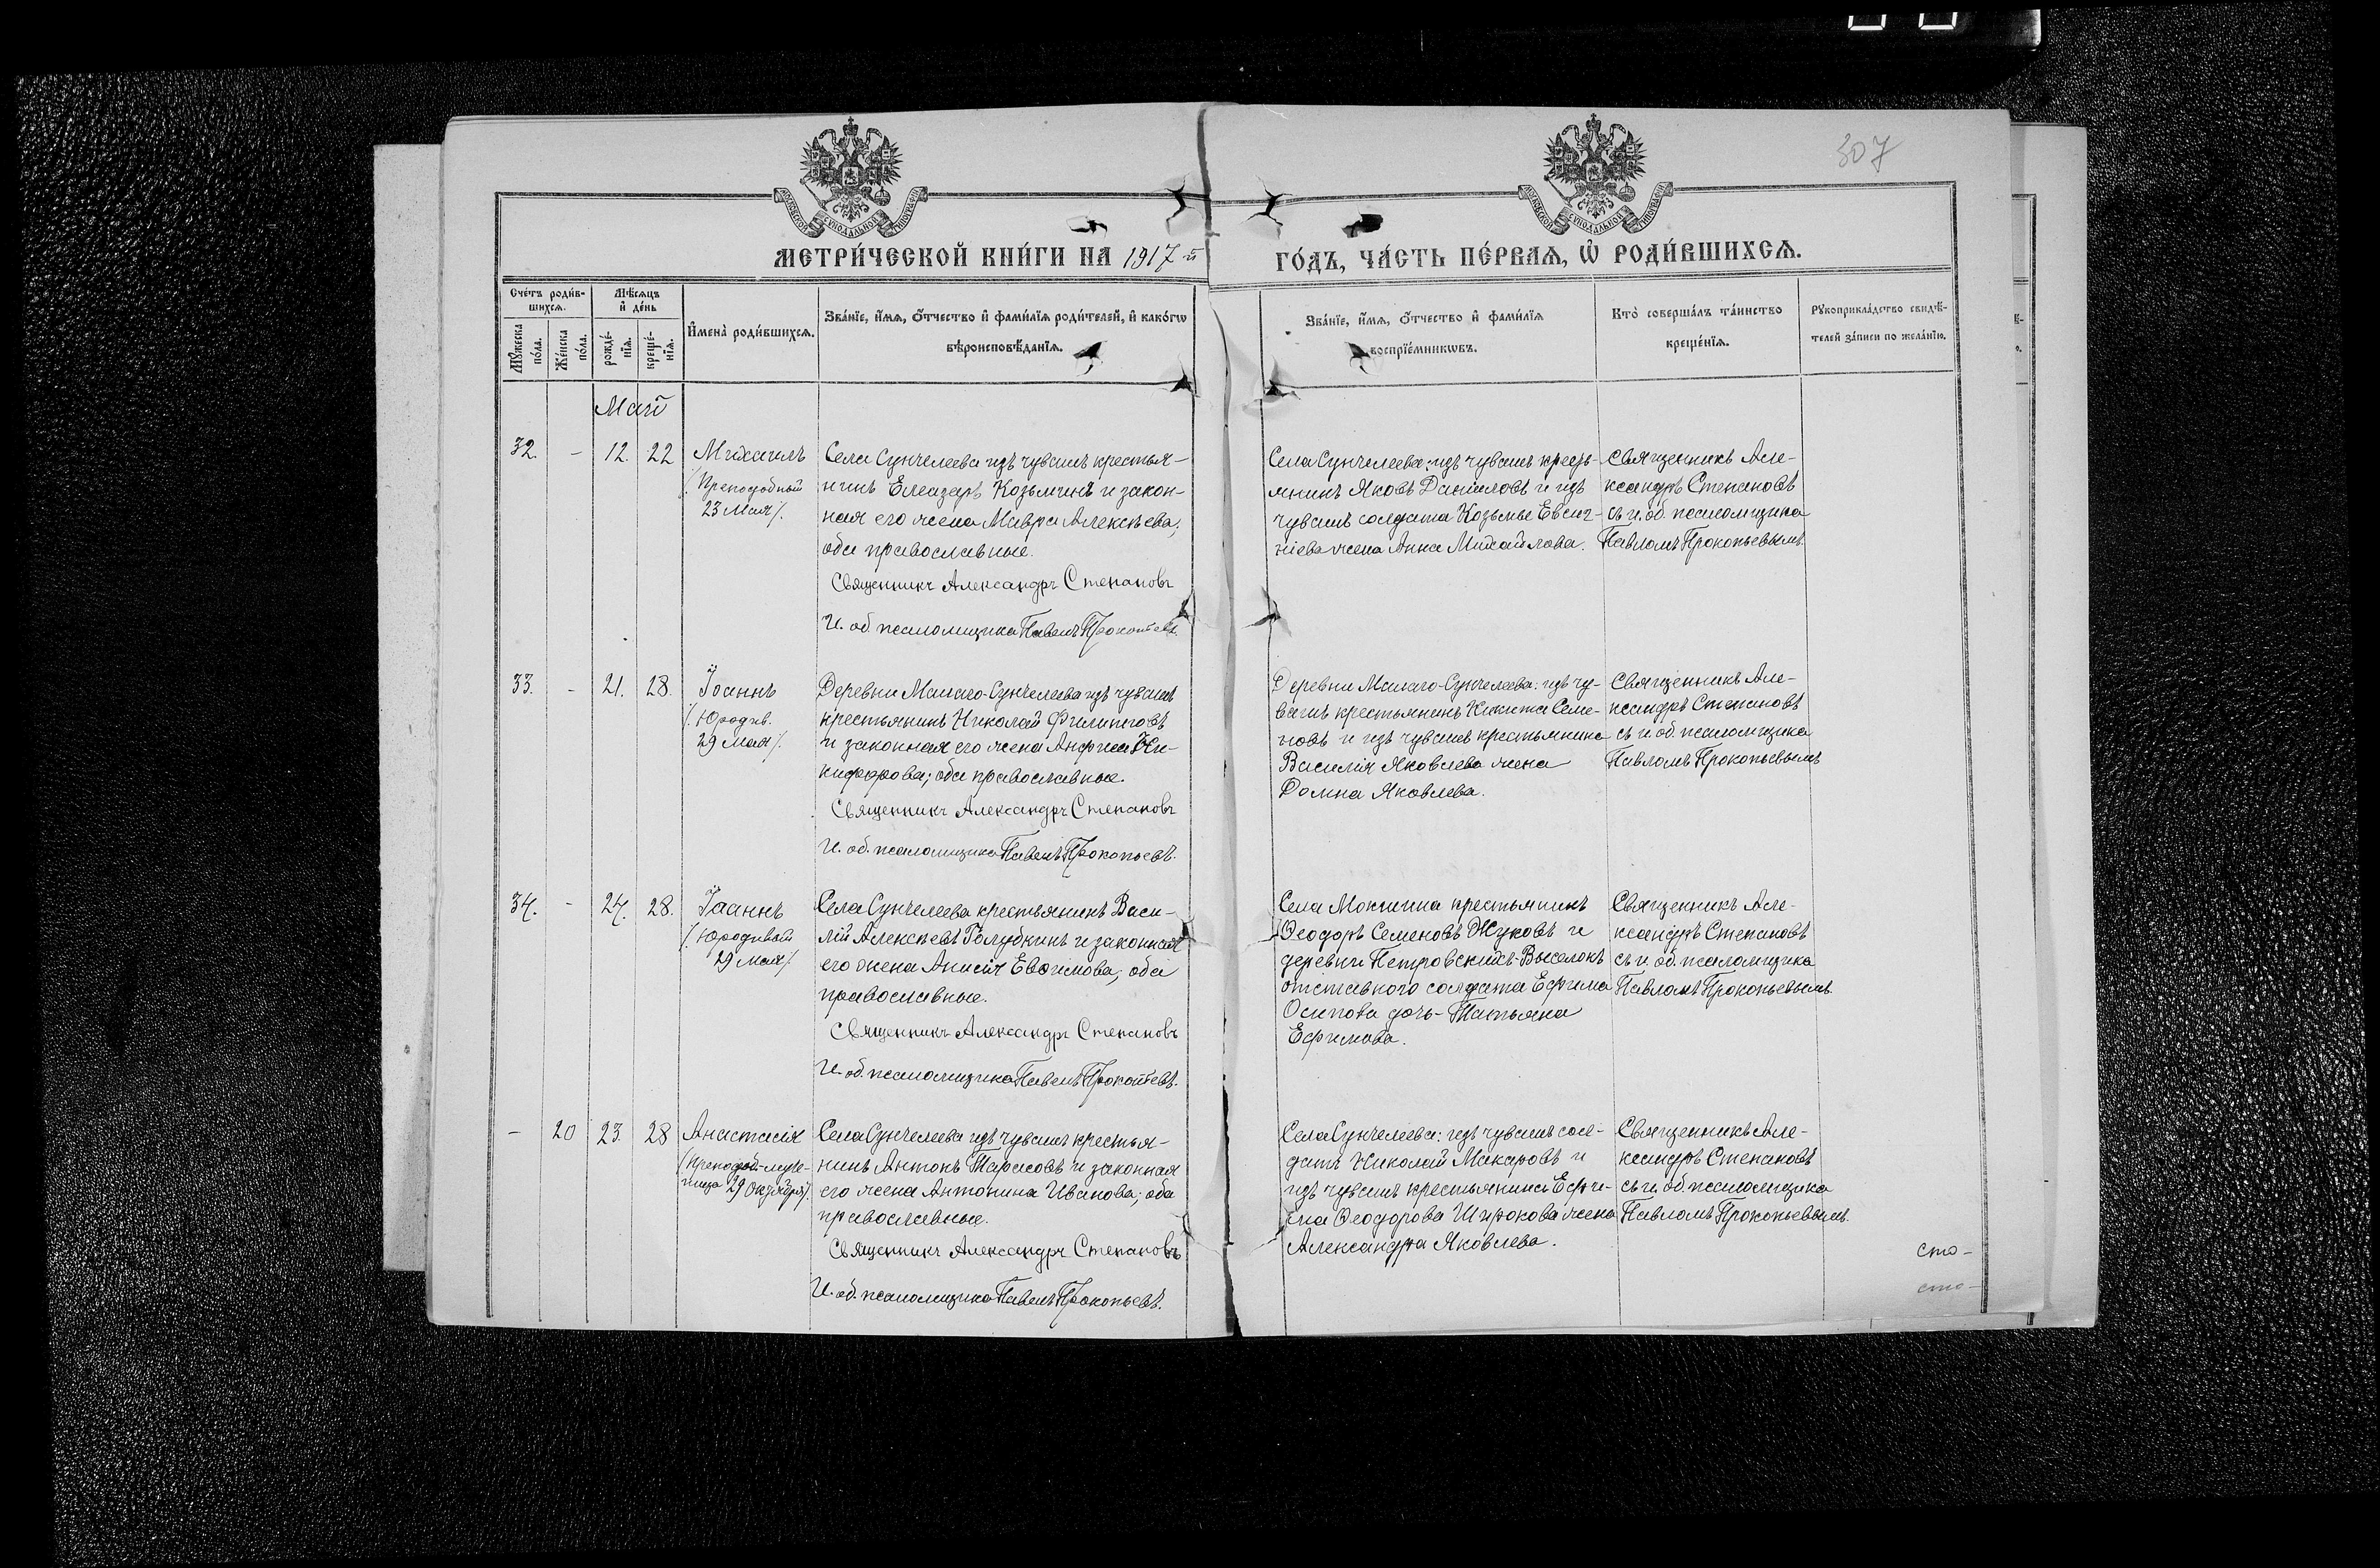 307
МЕТРИ́ЧЕСКОЙ КНИ́ГИ НА 1917-й
ГО́ДЪ, ЧА́СТЬ ПЕ́РВАѦ, Ѡ РОДИ́ВШИХСѦ.
Сче́тъ роди́в-
шихсѧ.
Мѣ́сѧцъ
и҆ де́нь
Мꙋ́жеска
по́ла.
Же́нска
по́ла.
рожде́-
нїѧ.
креще́-
нїѧ.
И҆мена̀ роди́вшихсѧ.
Зва́нїе, и҆́мѧ, ѻ҆́тчество и҆ фами́лїѧ роди́телей, и҆ како́гѡ
вѣроисповѣ́данїѧ.
Зва́нїе, и҆́мѧ, ѻ҆́тчество и҆ фами́лїѧ
воспрїе́мникѡвъ.
Кто̀ соверша́лъ та́инство
креще́нїѧ.
Рꙋкоприкла́дство свидѣ́-
телей за́писи по жела́нїю.
Май
32. - 12. 22 Михаилъ
/Преподобный
23 Мая/.
Села Сунчелеева изъ чувашъ крестья-
нинъ Елеазаръ Козьминъ и закон-
ная его жена Мавра Алексѣева;
оба православные.
Священникъ Александръ Степановъ
И. об. псаломщика Павелъ Прокопьевъ.
Села Сунчелеева: изъ чувашъ кресть-
янинъ Яковъ Даниловъ и изъ
чувашъ солдата Козьмы Евсиг-
ніева жена Анна Михайлова.
Священникъ Але-
ксандръ Степановъ
съ и. об. псаломщика
Павломъ Прокопьевымъ.
33. - 21. 28. Іоаннъ
/Юродив.
29 Мая/.
Деревни Малаго-Сунчелеева изъ чувашъ
крестьянинъ Николай Филипповъ
и законная его жена Анфиса Ни-
кифорова; оба православные.
Священникъ Александръ Степановъ
И. об. псаломщика Павелъ Прокопьевъ.
Деревни Малаго-Сунчелеева: изъ чу-
вашъ крестьянинъ Никита Семе-
новъ и изъ чувашъ крестьянина
Василія Яковлева жена
Домна Яковлева.
Священникъ Але-
ксандръ Степановъ
съ и. об. псаломщика
Павломъ Прокопьевымъ
34. - 24. 28. Іоаннъ
/Юродивый
29 Мая/
Села Сунчелеева крестьянинъ Васи-
лій Алексѣевъ Голубкинъ и законная
его жена Анисія Евѳимова; оба
православные.
Священникъ Александръ Степановъ
И. об. псаломщика Павелъ Прокопьевъ.
Села крестьянинъ
Ѳеодоръ Семеновъ Жуковъ и
деревни Петровскихъ-Выселокъ
отставного солдата Ефима
Осипова дочь-Татьяна
Ефимова.
Священникъ Але-
ксандръ Степановъ
съ и. об. псаломщика
Павломъ Прокопьевымъ
- 20 23. 28 Анастасія
/Преподоб.-муче-
ница 29 Октября/.
Села Сунчелеева изъ чувашъ крестья-
нинъ Антонъ Тарасовъ и законная
его жена Антонина Иванова; оба
православные.
Священникъ Александръ Степановъ
И. об. псаломщика Павелъ Прокопьевъ.
Села Сунчелеева: изъ чувашъ сол-
датъ Николай Макаровъ и
изъ чувашъ крестьянина Ефи-
ма Ѳеодорова Широкова жена
Александра Яковлева.
Священникъ Але-
ксандръ Степановъ
съ и. об. псаломщика
Павломъ Прокопьевымъ.
сто-
сто-